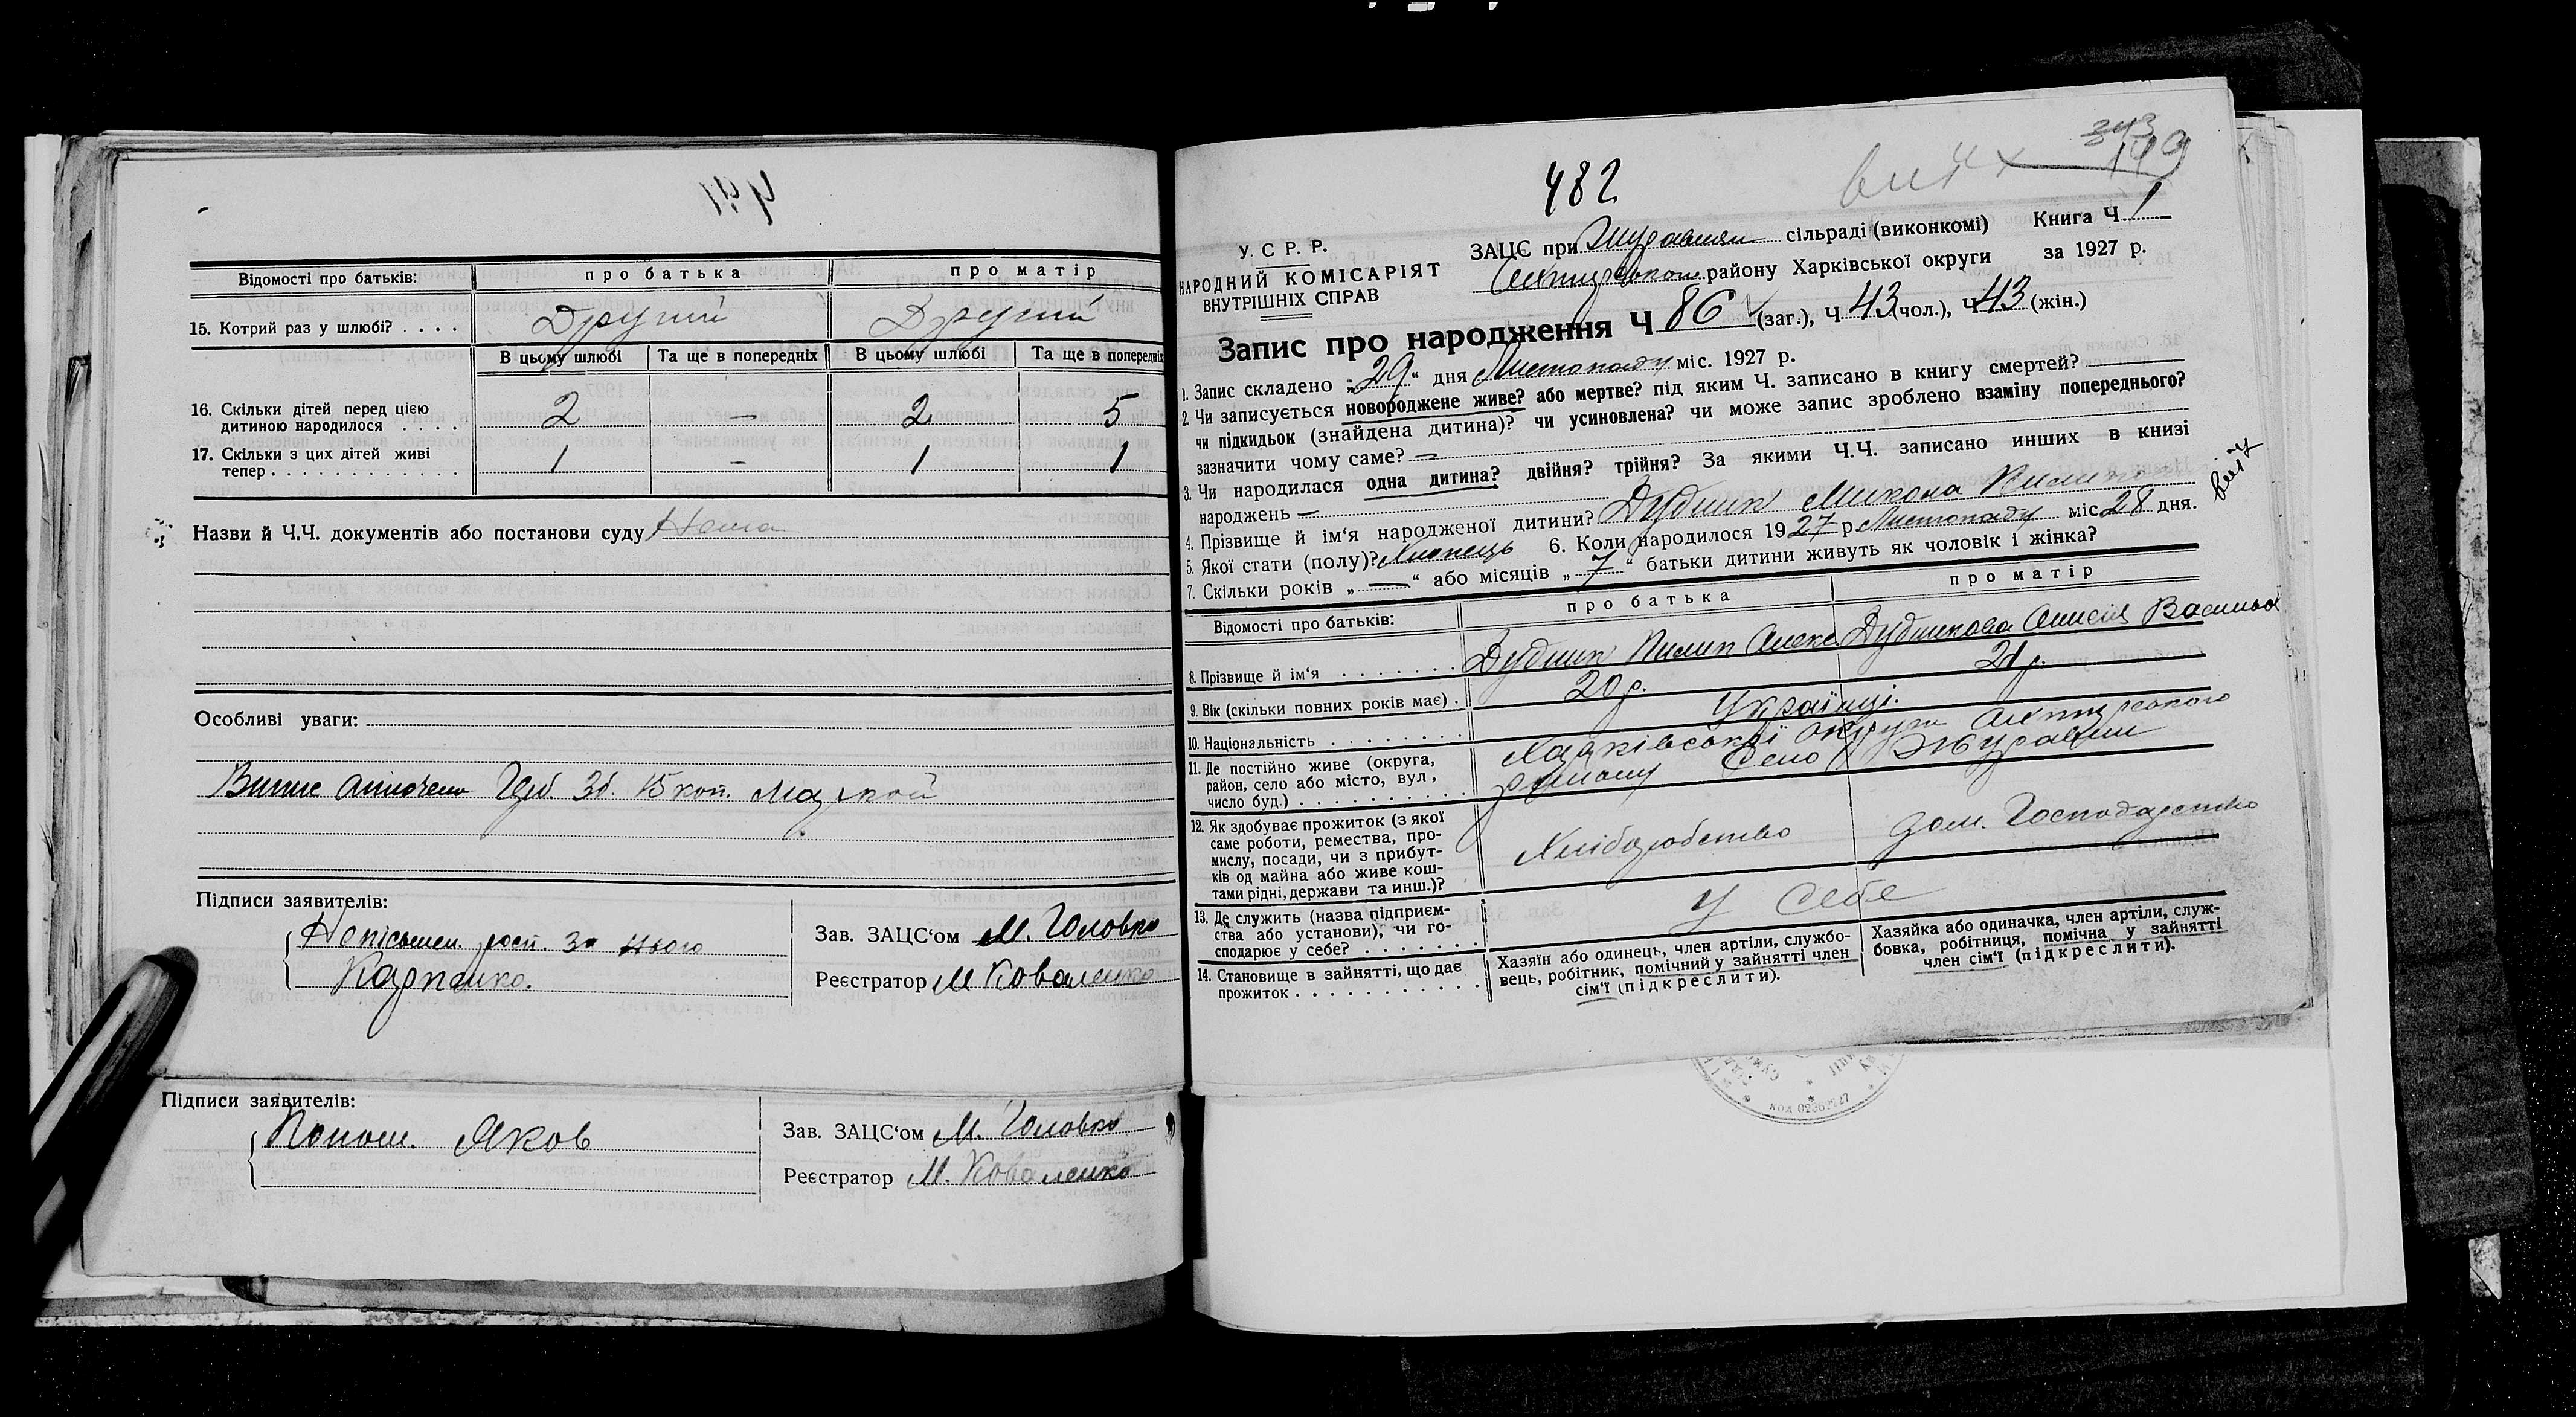 Відомості про батьків: про батька про матір
15. Котрий раз у шлюбі? . . . . Другий Другий
В цьому шлюбі Та ще в попередніх В цьому шлюбі Та ще в попередніх
16. Скільки дітей перед цією
дитиною народилося . . . . 2 — 2 5
17. Скільки з цих дітей живі
тепер . . . . . . . . . . . . . 1 – 1 1
Назви й Ч.Ч. документів або постанови суду
Особливі уваги:
15 коп.
Підписи заявителів:
за нього
Карпенко.
Зав. ЗАЦС‘ом М. Головко
Реєстратор М Коваленко
Підписи заявителів:
Яков
Зав. ЗАЦС‘ом М. Головко
Реєстратор М. Коваленко
343
199
482
У. С. Р. Р.
НАРОДНИЙ КОМІСАРІЯТ
ВНУТРІШНІХ СПРАВ
ЗАЦС при сільраді (виконкомі) Книга Ч. 1
району Харківської округи за 1927 р.
Запис про народження Ч 86 (заг.), Ч. 43 (чол.), Ч 43 (жін.)
1. Запис складено „29“ дня Листопаду міс. 1927 р.
2. Чи записується новороджене живе? або мертве? під яким Ч. записано в книгу смертей?
чи підкидьок (знайдена дитина)? чи усиновлена? чи може запис зроблено взаміну попереднього?
зазначити чому саме? —
3. Чи народилася одна дитина? двійня? трійня? За якими Ч.Ч. записано инших в книзі
народжень —
4. Прізвище й ім‘я народженої дитини? Дубник Микола
5. Якої стати (полу)? Хлопець 6. Коли народилося 1927 р. Листопаду міс. 28 дня.
7. Скільки років „—“ або місяців „7“ батьки дитини живуть як чоловік і жінка?
Відомості про батьків: про батька про матір
8. Прізвище й ім‘я . . . . . . . Дубник Пилип Алекс Дубникова Анисія Васильов
9. Вік (скільки повних років має) . 20 р. 21 р.
10. Національність . . . . . . . . Українці.
11. Де постійно живе (округа,
район, село або місто, вул,
число буд.) . . . . . . . . . .
Харківської округи
району Село Журавни
12. Як здобуває прожиток (з якої
саме роботи, ремества, про-
мислу, посади, чи з прибут-
ків од майна або живе кош-
тами рідні, держави та инш.)?
Хліборобство дом. Господарство
13. Де служить (назва підприєм-
ства або установи), чи го-
сподарює у себе? . . . . . . .
У Себе
14. Становище в зайнятті, що дає
прожиток . . . . . . . . . . .
Хазяїн або одинець, член артіли, службо-
вець, робітник, помічний у зайнятті член
сім‘ї (підкреслити).
Хазяйка або одиначка, член артіли, служ-
бовка, робітниця, помічна у зайнятті
член сім‘ї (підкреслити).